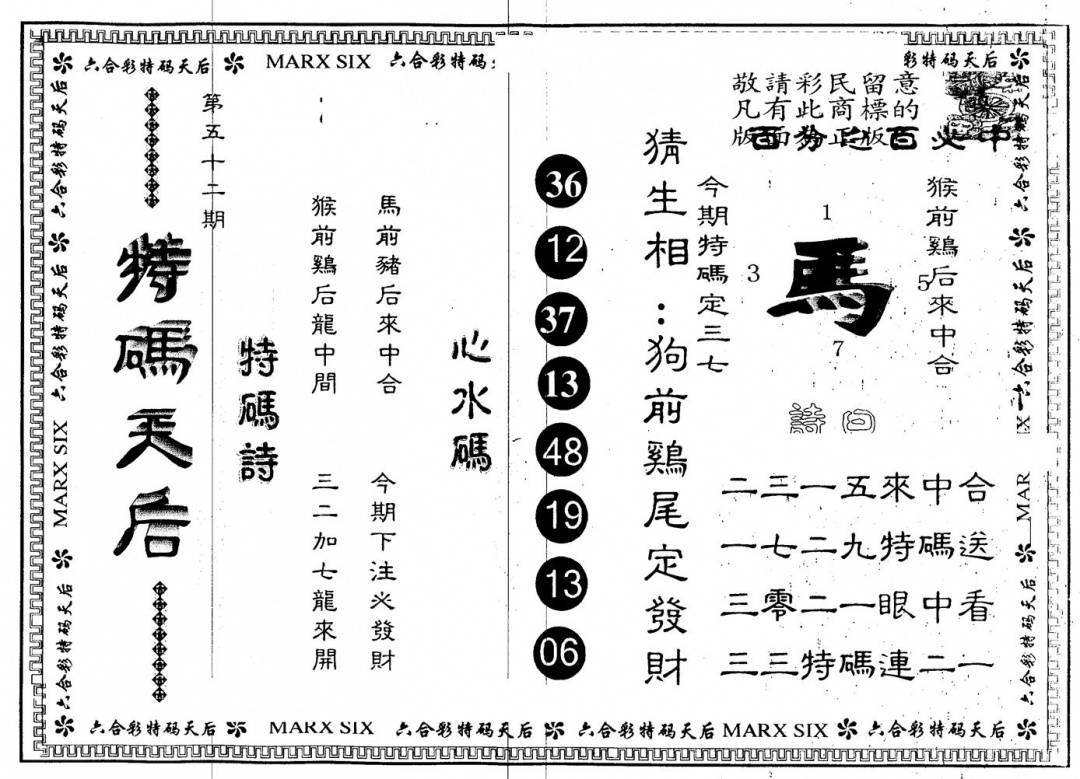 六合彩特码天后 MARX SIX 六合彩特码
彩特码天后
敬請彩民留意
凡有此商標的
版面為正版
百分之百必中
第五十二期
特碼天后
特碼詩
馬前豬后來中合
今期下注必發財
猴前鷄后龍中間
三二加七龍來開
心水碼
36
12
37
13
48
19
13
06
猜生相:狗前鷄尾定發財
今期特碼定三七
1
3
馬
5
7
猴前鷄后來中合
詩曰
二三一五來中合
一七二九特碼送
三零二一眼中看
三三特碼連二一
六合彩特码天后
六合彩特码天后
六合彩特码天后
MARX SIX
六合彩特码天后
六合彩特码天后
六合彩特码天后
MAR
六合彩特码天后
六合彩特码天后 MARX SIX 六合彩特码天后 六合彩特码天后 MARX SIX 六合彩特码天后